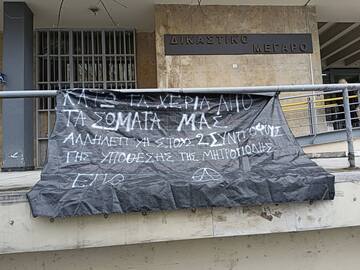 ΔΙΚΑΣΤΙΚΟ
ΜΕΓΑΡΟ
ΚΑΤΩ ΤΑ ΧΕΡΙΑ ΑΠΟ
ΤΑ ΣΩΜΑΤΑ ΜΑΣ
ΣΤΟΥΣ 2 ΣΥΝΤΡΟΦΟΥΣ
ΤΗΣ ΥΠΟΘΕΣΗΣ ΤΗΣ ΜΗΤΡΟΠΟΛΗΣ